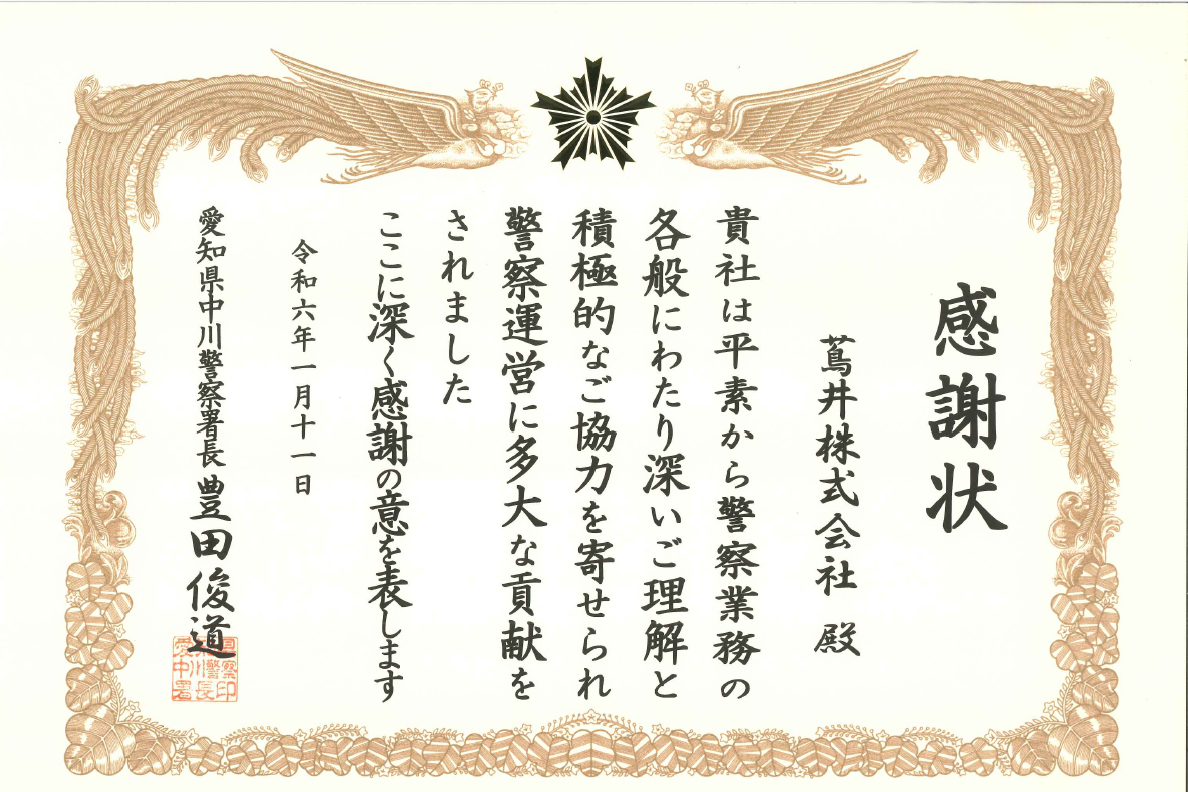 感謝状
蔦井株式会社 殿
貴社は平素から警察業務の
各般にわたり深いご理解と
積極的なご協力を寄せられ
警察運営に多大な貢献を
されました
ここに深く感謝の意を表します
令和六年一月十一日
愛知県中川警察署長 豊田俊道